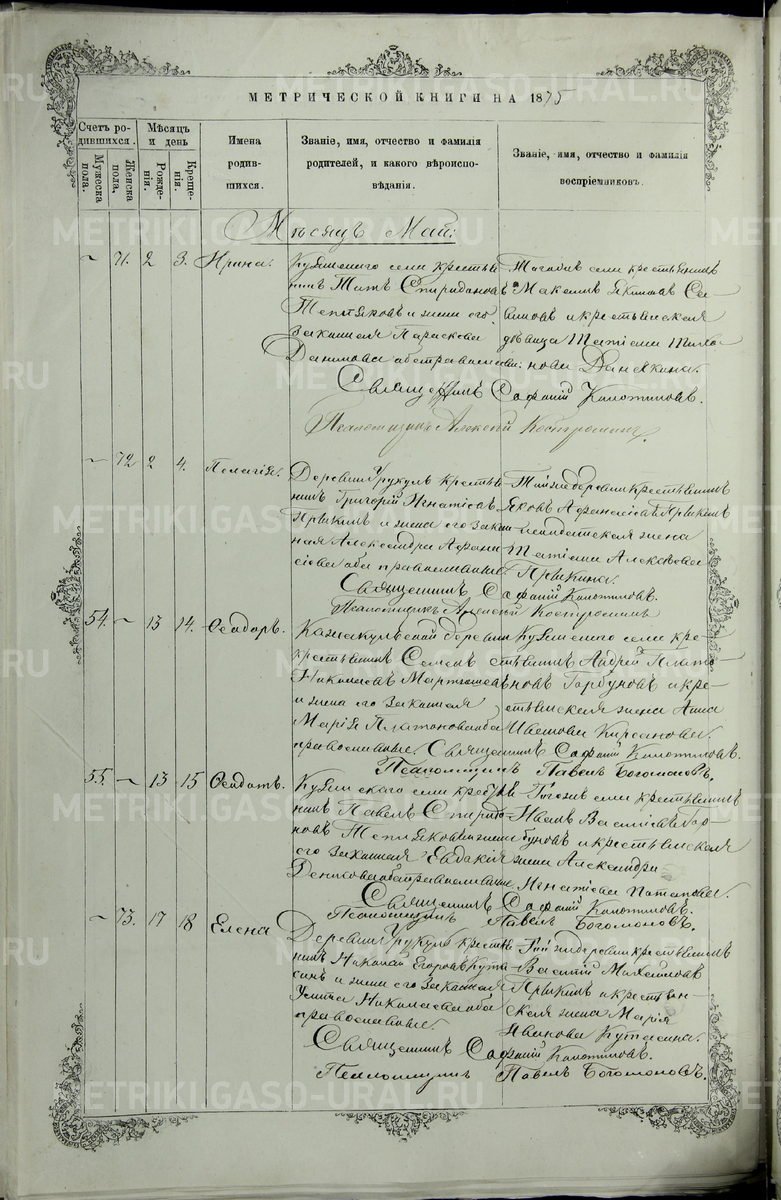 МЕТРИЧЕСКОЙ КНИГИ НА 1875
Счетъ родившихся.
Мужеска пола.
Женска пола.
Мѣсяцъ и день
Рожденія.
Крещенія.
Имена родившихся.
Званіе, имя, отчество и фамилія родителей, и какого вѣроисповѣданія.
Званіе, имя, отчество и фамилія воспріемниковъ.
Мѣсяцъ Май:
~ 71. 2 3. Ирина.
села крестья
нинъ Титъ Спиридоновъ
Тепляковъ и жена его
законная Параскева
Данилова оба православные:
Тогоже села крестьянинъ
Максимъ Якимовъ Са
виновъ и крестьянская
дѣвица Татіана Тихо
нова Данякина.
Священникъ Софоній Колотиловъ.
Псаломщикъ Алексій Костромин.
~ 72. 2 4. Пелагія.
Деревни Урукуль крестья
нинъ Григорій Игнатіевъ
Пряхинъ и жена его закон
ная Александра Афана
сіева оба православные.
Тойже деревни крестьянинъ
Яковъ Афанасіевъ Пряхинъ
жена
Татіана Алексѣева
Пряхина.
Священникъ Софоній Колотиловъ.
Псаломщикъ Алексій Костроминъ
54. ~ 13 14. Ѳеодоръ.
деревни
крестьянинъ Семенъ
Николаевъ Мартюшевъ
и жена его законная
Марія Платоновна оба
православные.
села кре-
стьянинъ Андрей Плато-
новъ Горбуновъ и кре-
стьянская жена Анна
Иванова Кирсанова.
Священникъ Софоній Колотиловъ.
Псаломщикъ Павелъ Богомоловъ.
55. ~ 13 15 Ѳеодотъ.
села крестья
нинъ Павелъ Спиридо-
новъ Тепляковъ и жена
его законная Евдокія
Денисова оба православные
Тогоже села крестьянинъ
Иванъ Василіевъ Гор
буновъ и крестьянская
жена Александра
Игнатіева Потапова.
Священникъ Софоній Колотиловъ.
Псаломщикъ Павелъ Богомоловъ.
~ 73. 17 18 Елена
Деревни Урукуль крестья
нинъ Николай Егоровъ Кута
синъ и жена его законная
Улита Николаева оба
православные.
Той же деревни крестьянинъ
Василій Михайловъ
Пряхинъ и крестьян-
ская жена Марія
Иванова Кутасина.
Священникъ Софоній Колотиловъ.
Псаломщикъ Павелъ Богомоловъ.
METRIKI.GASO-URAL.RU